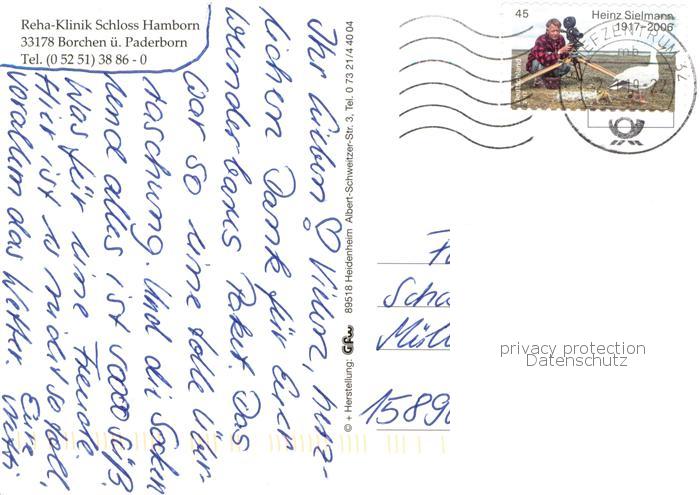 Reha-Klinik Schloss Hamborn
33178 Borchen ü. Paderborn
Tel. (0 52 51) 38 86 - 0
Ihr Lieben ♡ Vielen, herz-
lichen Dank für Euer
wunderbares Paket. Das
war so eine tolle Über-
raschung. Und die Socken
und alles ist soooo süß.
Was für eine Freude
Hier ist es nicht so toll,
vorallem das Wetter.
Eure
© + Herstellung: Gfw 89518 Heidenheim Albert-Schweitzer-Str. 3, Tel. 0 73 21/4 40 04
45
Heinz Sielmann
1917–2006
Deutschland
BRIEFZENTRUM 32
mb
Scha
Mühl
15890
privacy protection
Datenschutz